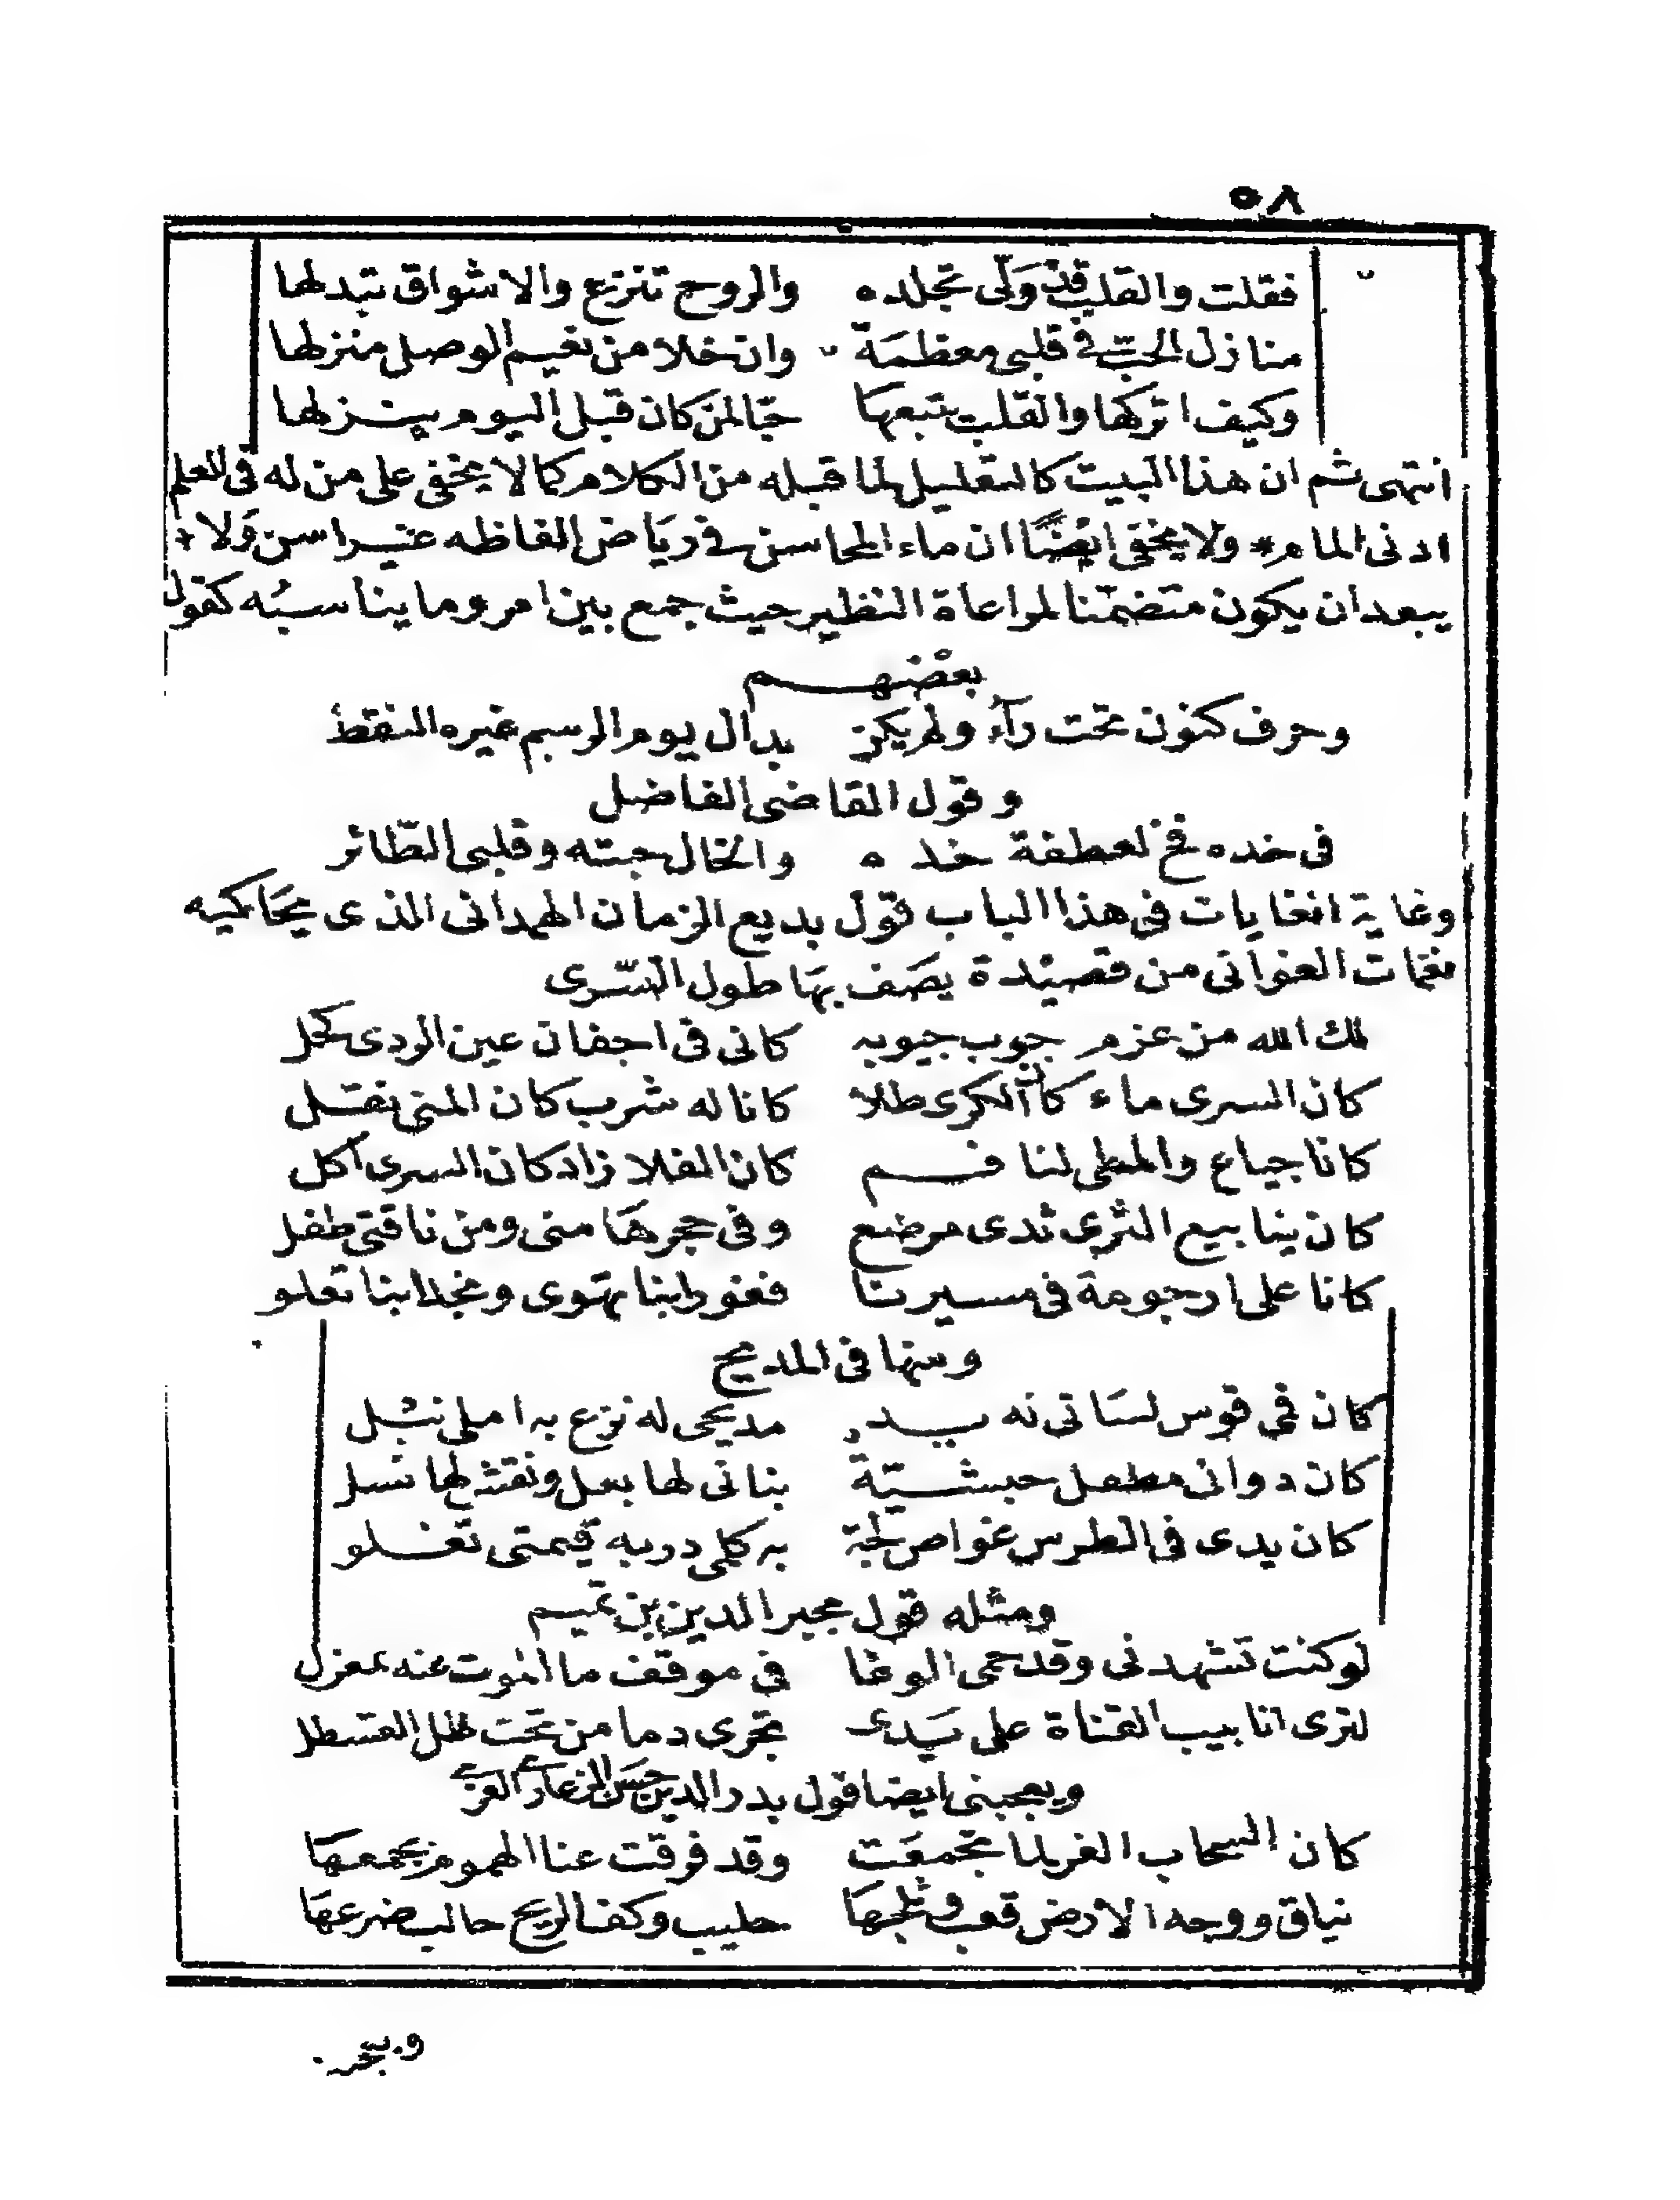 ٥٨
فقلت والقلب قد وَلّى تجلده والروح تنزع والاشواق تبدلها
منازل الحبّ في قلبى معظمَة وان خلا من نعيم الوصل منزلها
وكيف اتركها والقلب يتبعها حبّا لمن كان قبل اليوم ينزلها
انتهى ثم ان هذا البيت كالتعليل لما قبله من الكلام كما لا يخفى على من له فى العلم
ادنى المام * ولا يخفى ايضًا ان ماء المحاسن في رياض الفاظه غير اسن وَلا
يبعد ان يكون متضمّنا لمراعاة النظير حيث جمع بين امر وما يناسبُه كقول
بعضهم
وحرف كنون تحت رآءٍ ولم يكن بدال يوم الرسم غيره النقط
وقول القاضى الفاضل
فى خده فخ لعطفة خده والخال حبته وقلبى الطّائر
وغاية الغايات فى هذا الباب قول بديع الزمان الهمدانى الذى يحاكيه
نغمات الغوانى من قصيْدة يصَف بهَا طول السّرى
لك الله من عزم جوب جيوبه كانى فى اجفان عين الردى كحل
كان السرى ماء كأن الكرى طلا كانا له شرب كان المنى نقل
كانا جياع والمطى لنا فم كان الفلا زاد كان السرى اكل
كان ينابيع الثرى ثدى مرضع وفى حجرهَا منى ومن ناقتى طفل
كانا على ارجوحة فى مسيرنا فغور ابنا تهوى ونجد ابنا تعلو
ومنها فى المديح
كان فمى قوس لسَانى له يد مديحى له نزع به املى نبل
كان دوانى مطفل حبشيّة بنانى لها بعل ونقشه لها نسل
كان يدى فى الطرس غواص لجة به كلمى در به قيمتى تغلو
ومثله قول مجير الدين بن تميم
لو كنت تشهدنى وقد حمى الوغا فى موقف ما الموت عنه بمعزل
لترى انابيب القناة على يَدى تجرى دما من تحت ظل القسطل
ويعجبنى ايضا قول بدر الدين حسن الغزى
كان السحاب الغر لما تجمعَت وقد فرقت عنا الهموم بجمعهَا
نياق ووجه الارض قعب وثلجهَا حليب وكف الريح حالب ضرعهَا